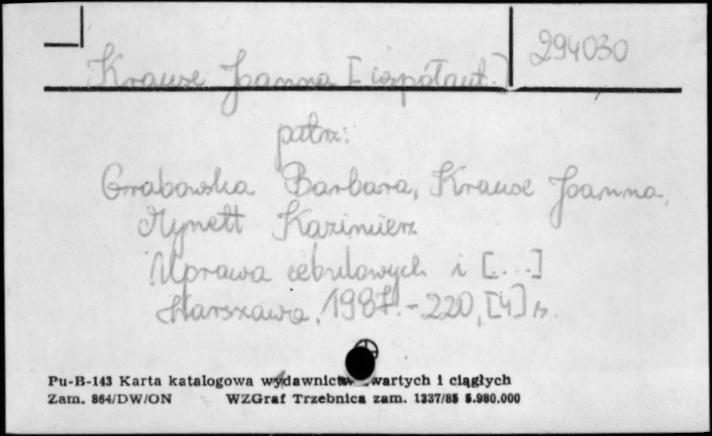 294030
Krause Joanna [współaut.]
patrz:
Grabowska Barbara, Krause Joanna,
Mynett Kazimierz
Uprawa cebulowych i [...]
Warszawa, 1987. - 220, [4] s.
Pu-B-143 Karta katalogowa wydawnictw zwartych i ciągłych
Zam. 864/DW/ON WZGraf Trzebnica zam. 1337/85 5.980.000